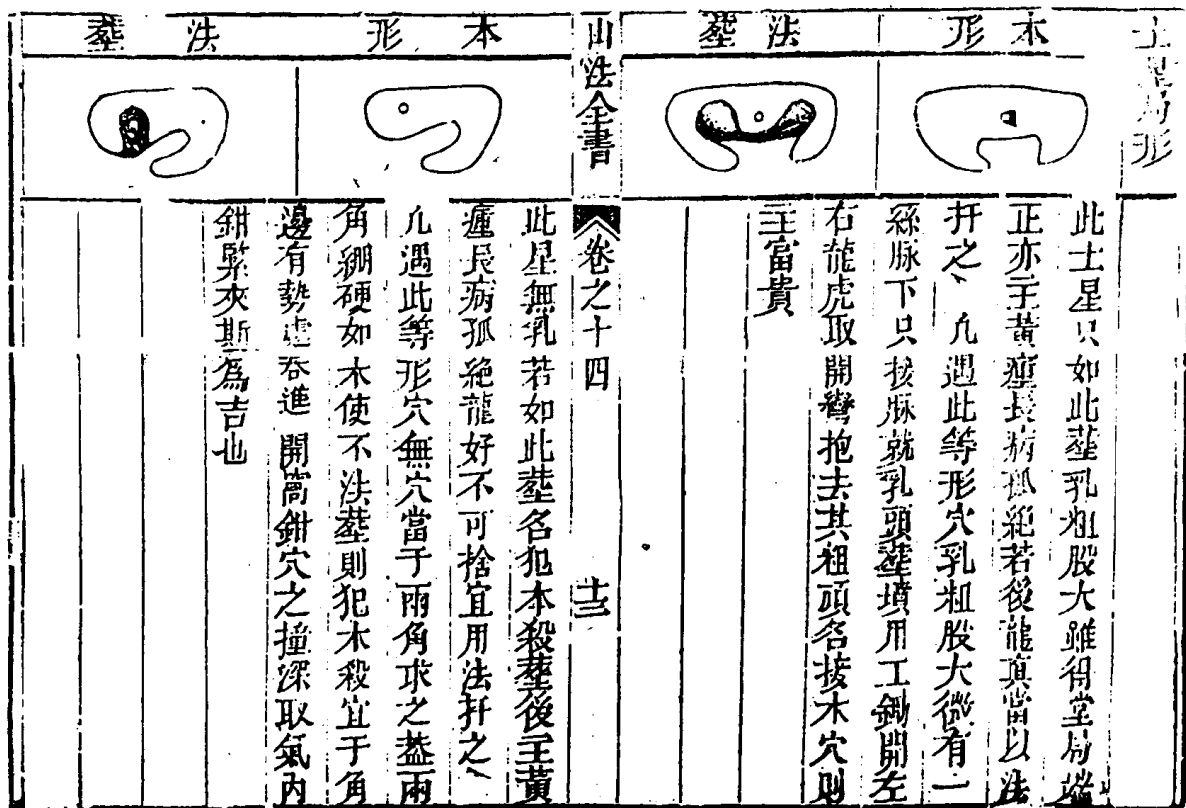 土星局形
本形
葬法
此土星只如此葬乳粗股大雖得堂局端
正亦主黃瘇長病孤絕若後龍真當以法
扦之、凢遇此等形穴乳粗股大微有一
絲脉下只接脉就乳頭葬墳用工鋤開左
右龍虎取開彎抱去其粗頭名接木穴則
主富貴
山法全書
卷之十四
十三
本形
葬法
此星無乳若如此葬名犯本殺葬後主黃
瘇長病孤絕龍好不可捨宜用法扦之、
凢遇此等形穴無穴當于兩角求之葢兩
角綳硬如木使不法葬則犯木殺宜于角
邊有勢處吞進開窩鉗穴之撞深取氣內
鉗緊夾斯爲吉也